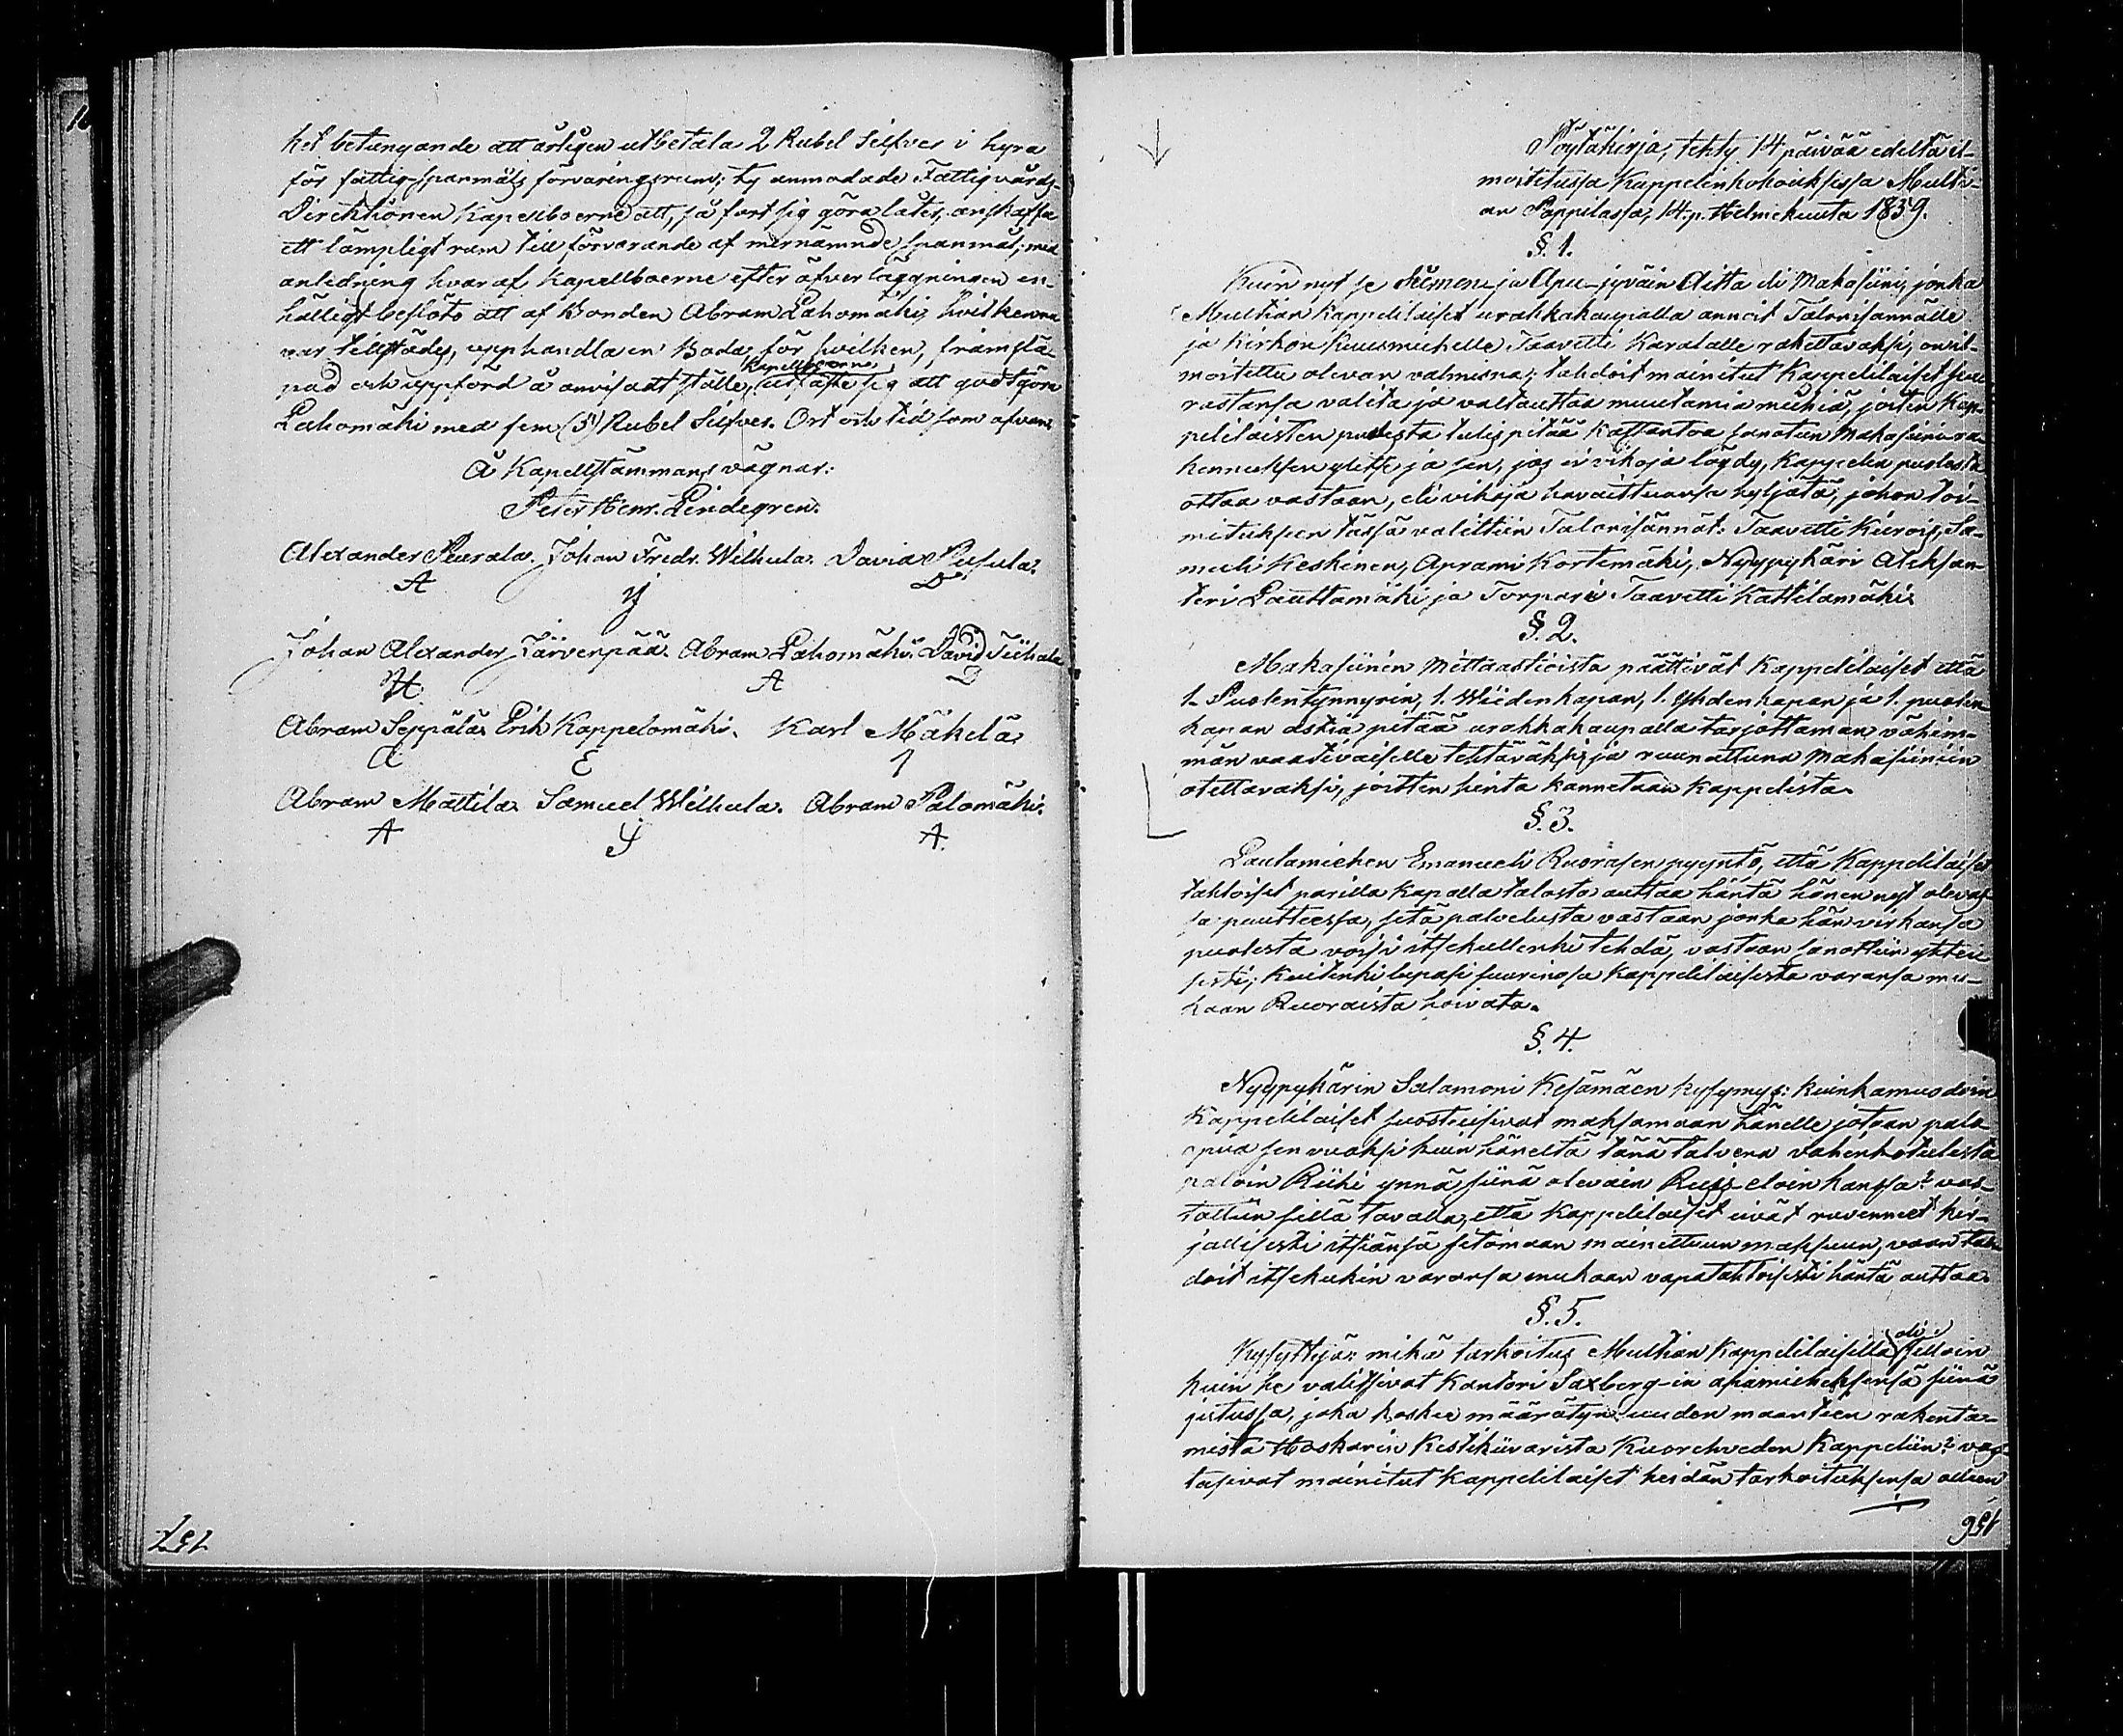 het betungande att årligen utbetala 2 Rubel Silfver i hyra
för fattig-spanmåls förvaringsrum; ty anmodade Fattigvårds-
Direktionen Kapellboerne att, så fort sig göra låter, anskaffa
ett lämpligt rum till förvarande af mernämnde spanmål; med
anledning hvaraf Kapellboerne efter öfverläggningen en-
hälligt beslöto att af Bonden Abram Lahomäki, hvilken nu
var tillstädes, upphandla en Boda, för hvilken, framslä-
pad och uppförd å anvisadt ställe, Kapellboerne utfäste sig att godtgöra
Lahomäki med fem (5) Rubel Silfver. Ort och tid som ofvan.
Å Kapellstämmans vägnar:
Peter Henr. Lindegren.
Alexander Peurala. Johan Fredr. Wilhula. David Pusula.
A y D
Johan Alexander Järvenpää. Abram Lahomäki. David Tiihala
H A D
Abram Seppälä. Erik Kappelomäki. Karl Mäkelä
A E 1
Abram Mattila. Samuel Wilhula. Abram Palomäki.
A y A.
157
Pöytäkirja, tehty 14 päivää edeltä il-
moitetussa Kappelinkokouksessa Multi-
an Pappilassa, 14. p. Helmekuuta 1859.
§. 1.
Kuin nyt se Siemen- ja Apu-jyväin Aitta eli Makasiini, jonka
Multian Kappelilaiset urakkakaupalla annoit Talonisännälle
ja Kirkon Kuusmiehelle Taavetti Karatalle rakettavaksi, on il-
moitettu olevan valmisna; tahdoit mainitut Kappelilaiset seu-
raatansa valita ja valtauttaa muutamia miehiä, joiten Kap-
pelilaisten puolesta tulis pitää Kattantoa sanotun Makasiini ra-
kennuksen ylitse ja sen, jos ei vikoja löydy, Kappelin puolesta
ottaa vastaan, eli vikoja havaittuansa hyljätä; johon toi-
mitukseen tässä valittiin Talonisännät: Taavetti Kiirois, Sa-
meli Keskinen, Aprami Kortemäki, Nyypykäri Aleksan-
teri Lauttamäki ja Torpari Taavetti Kattilamäki.
§. 2.
Makasiinin mittaastioista päättivät Kappelilaiset että
1. Puolentynnyrin, 1. Wiidenkapan, 1. Yhdenkapan ja 1. puolen-
kapan astia pitää urakkakaupalla tarjottaman vähim-
män vaativaiselle tehtäväksi, ja ruunattuna Makasiiniin
otettavaksi, joitten hinta kannetaan Kappelista.
§. 3.
Lautamiehen Emanueli Ruorasen pyyntö, että Kappelilaiset
tahtoisit parilla kapalla talosta auttaa häntä hänen nyt olevas-
sa puutteessa, sitä palvelusta vastaan jonka hän virkansa
puolesta voisi itsekullenki tehdä, vastaan sanottiin yhtei-
sesti; kuitenki lupasi suurin osa Kappelilaisista varansa mu-
kaan Ruoraista hoivata.
§. 4.
Nyypykärin Salamoni Kesämäen kysymys: Kuinkamuodoin
Kappelilaiset suostuisivat maksamaan hänelle jotaan palo-
apua sen vuoksi kuin häneltä tänä talvena vahinkotulesta
paloin Riihi ynnä siinä olevain Ruis-eloin kanssa? vas-
tattiin sillä tavalla, että Kappelilaiset eivät ruvenneet kir-
jallisesti itsiänsä sitomaan mainittuun maksuun, vaan tah-
doit itsekukin varansa mukaan vapatahtoisesti häntä auttaa.
§. 5.
Kysyttyä: mikä tarkoitus Multian Kappelilaisilla oli silloin
kuin he valitsivat Kantori Saxberg-in asiamieheksensä siinä
jutussa, joka koskee määrätyn uuden maantien rakenta-
mista Hoskarin Kestikiivarista Kuorehveden Kappeliin? vas-
tasivat mainitut Kappelilaiset heidän tarkoituksensa olleen
156